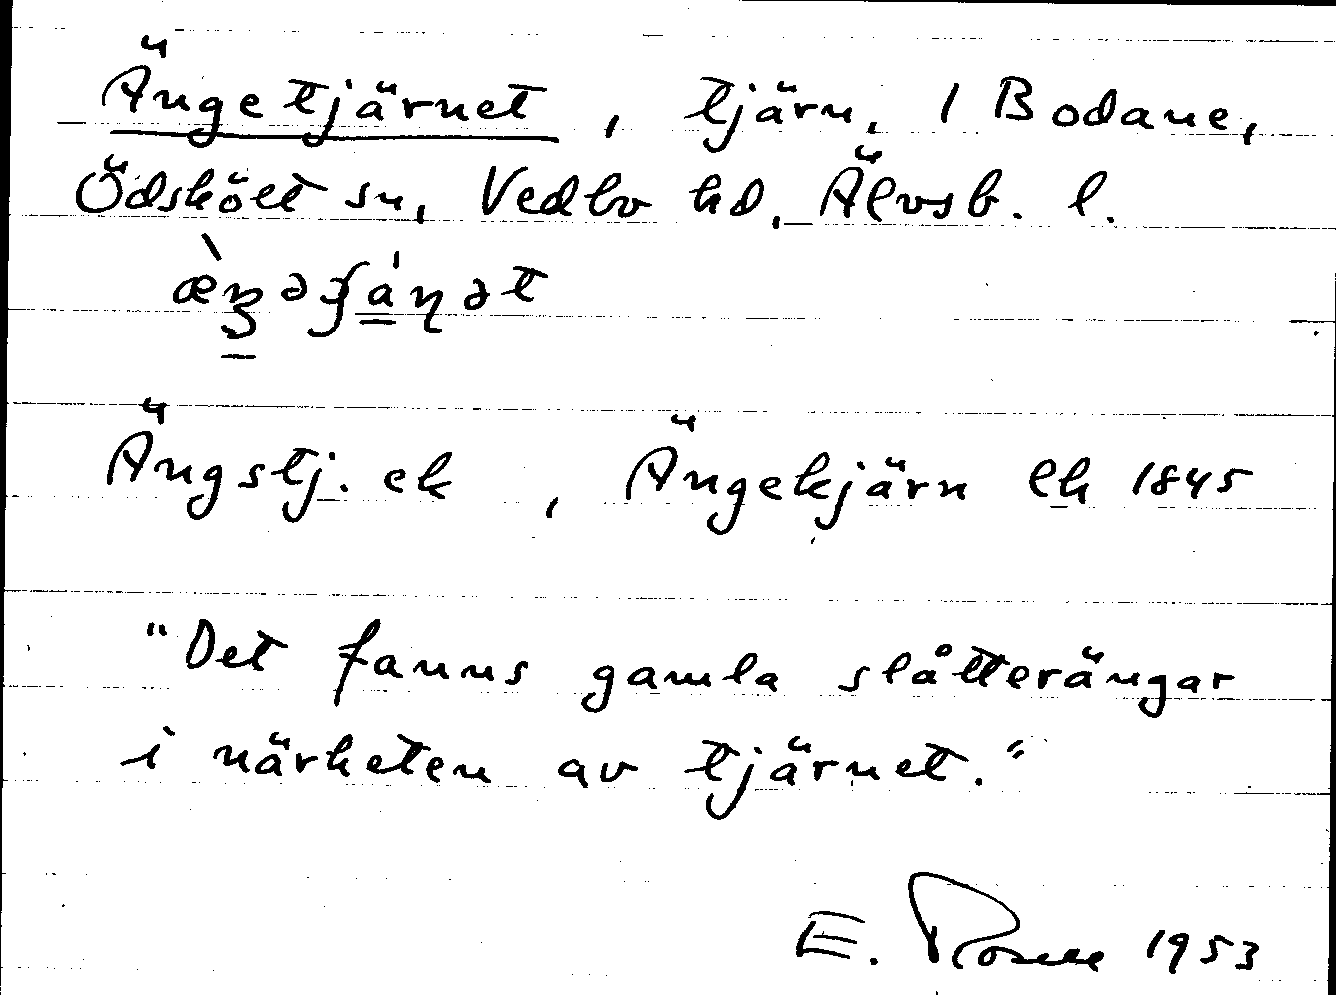 Ängetjärnet, tjärn, 1 Bodane,
Ödskölt sn, Vedbo hd, Älvsb. l.
Ängstj. ek, Ängekjärn Ek 1845
"Det fanns gamla slåtterängar
i närheten av tjärnet."
E. 1953